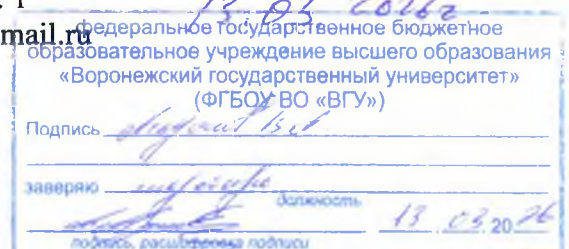 13.03 2026г
mail.ru
федеральное государственное бюджетное
образовательное учреждение высшего образования
«Воронежский государственный университет»
(ФГБОУ ВО «ВГУ»)
Подпись
заверяю
должность
13 03 2026
подпись, расшифровка подписи